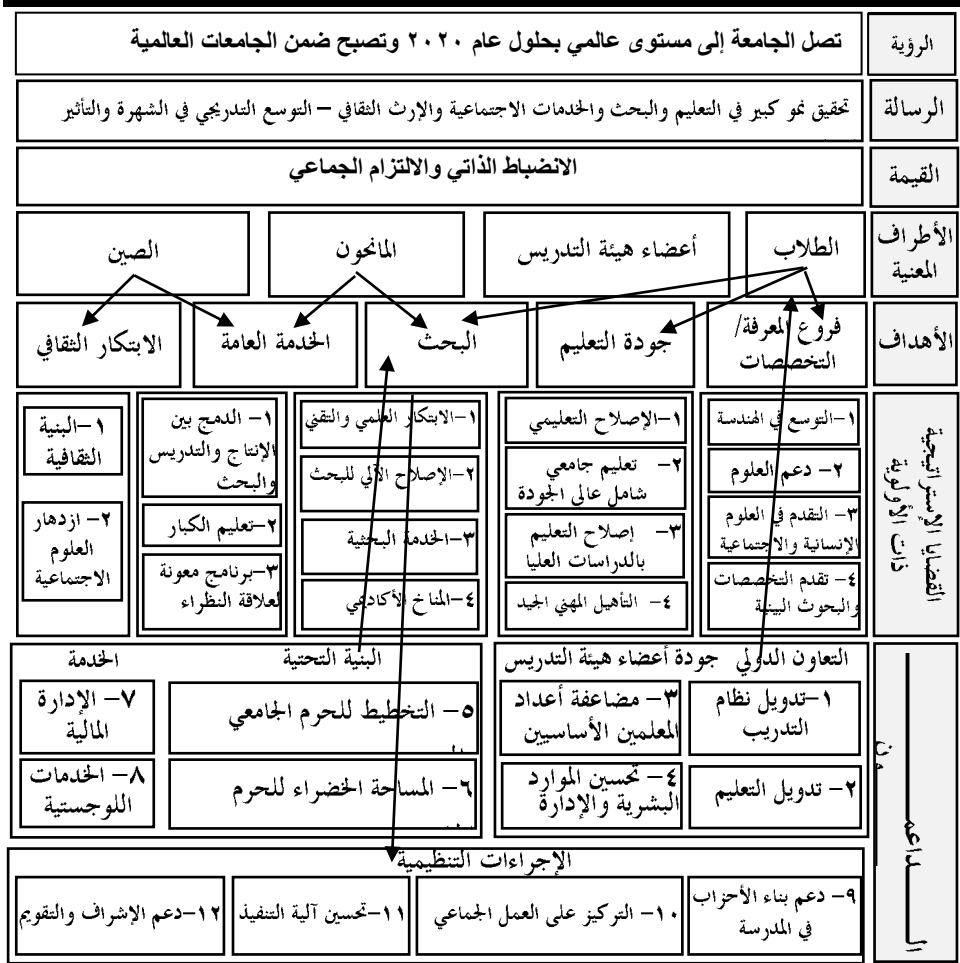 الرؤية
تصل الجامعة إلى مستوى عالمي بحلول عام ٢٠٢٠ وتصبح ضمن الجامعات العالمية
الرسالة
تحقيق نمو كبير في التعليم والبحث والخدمات الاجتماعية والإرث الثقافي – التوسع التدريجي في الشهرة والتأثير
القيمة
الانضباط الذاتي والالتزام الجماعي
الأطراف
المعنية
الطلاب
أعضاء هيئة التدريس
المانحون
الصين
الأهداف
فروع المعرفة/
التخصصات
جودة التعليم
البحث
الخدمة العامة
الابتكار الثقافي
القضايا الإستراتيجية
ذات الأولوية
١-التوسع في الهندسة
٢- دعم العلوم
٣- التقدم في العلوم
الإنسانية والاجتماعية
٤- تقدم التخصصات
والبحوث البينية
١-الإصلاح التعليمي
٢- تعليم جامعي
شامل عالى الجودة
٣- إصلاح التعليم
بالدراسات العليا
٤- التأهيل المهني الجيد
١-الابتكار العلمي والتقني
٢-الإصلاح الآلي للبحث
٣-الخدمة البحثية
٤-المناخ الأكاديمي
١- الدمج بين
الإنتاج والتدريس
والبحث
٢-تعليم الكبار
٣-برنامج معونة
لعلاقة النظراء
١-البنية
الثقافية
٢- ازدهار
العلوم
الاجتماعية
الـــداعمـــــــــ
ـون
التعاون الدولي
١-تدويل نظام
التدريب
٢- تدويل التعليم
جودة أعضاء هيئة التدريس
٣- مضاعفة أعداد
المعلمين الأساسيين
٤- تحسين الموارد
البشرية والإدارة
البنية التحتية
٥- التخطيط للحرم الجامعي
٦- المساحة الخضراء للحرم
الخدمة
٧- الإدارة
المالية
٨- الخدمات
اللوجستية
الإجراءات التنظيمية
٩- دعم بناء الأحزاب
في المدرسة
١٠- التركيز على العمل الجماعي
١١-تحسين آلية التنفيذ
١٢-دعم الإشراف والتقويم